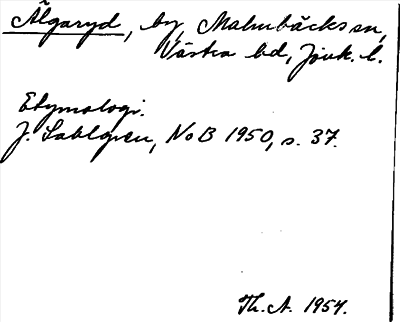 Älgaryd, by, Malmbäcks sn,
Västra hd, Jönk. l.
Etymologi.
J. Sahlgren, NoB 1950, s. 37.
Th. A. 1954.